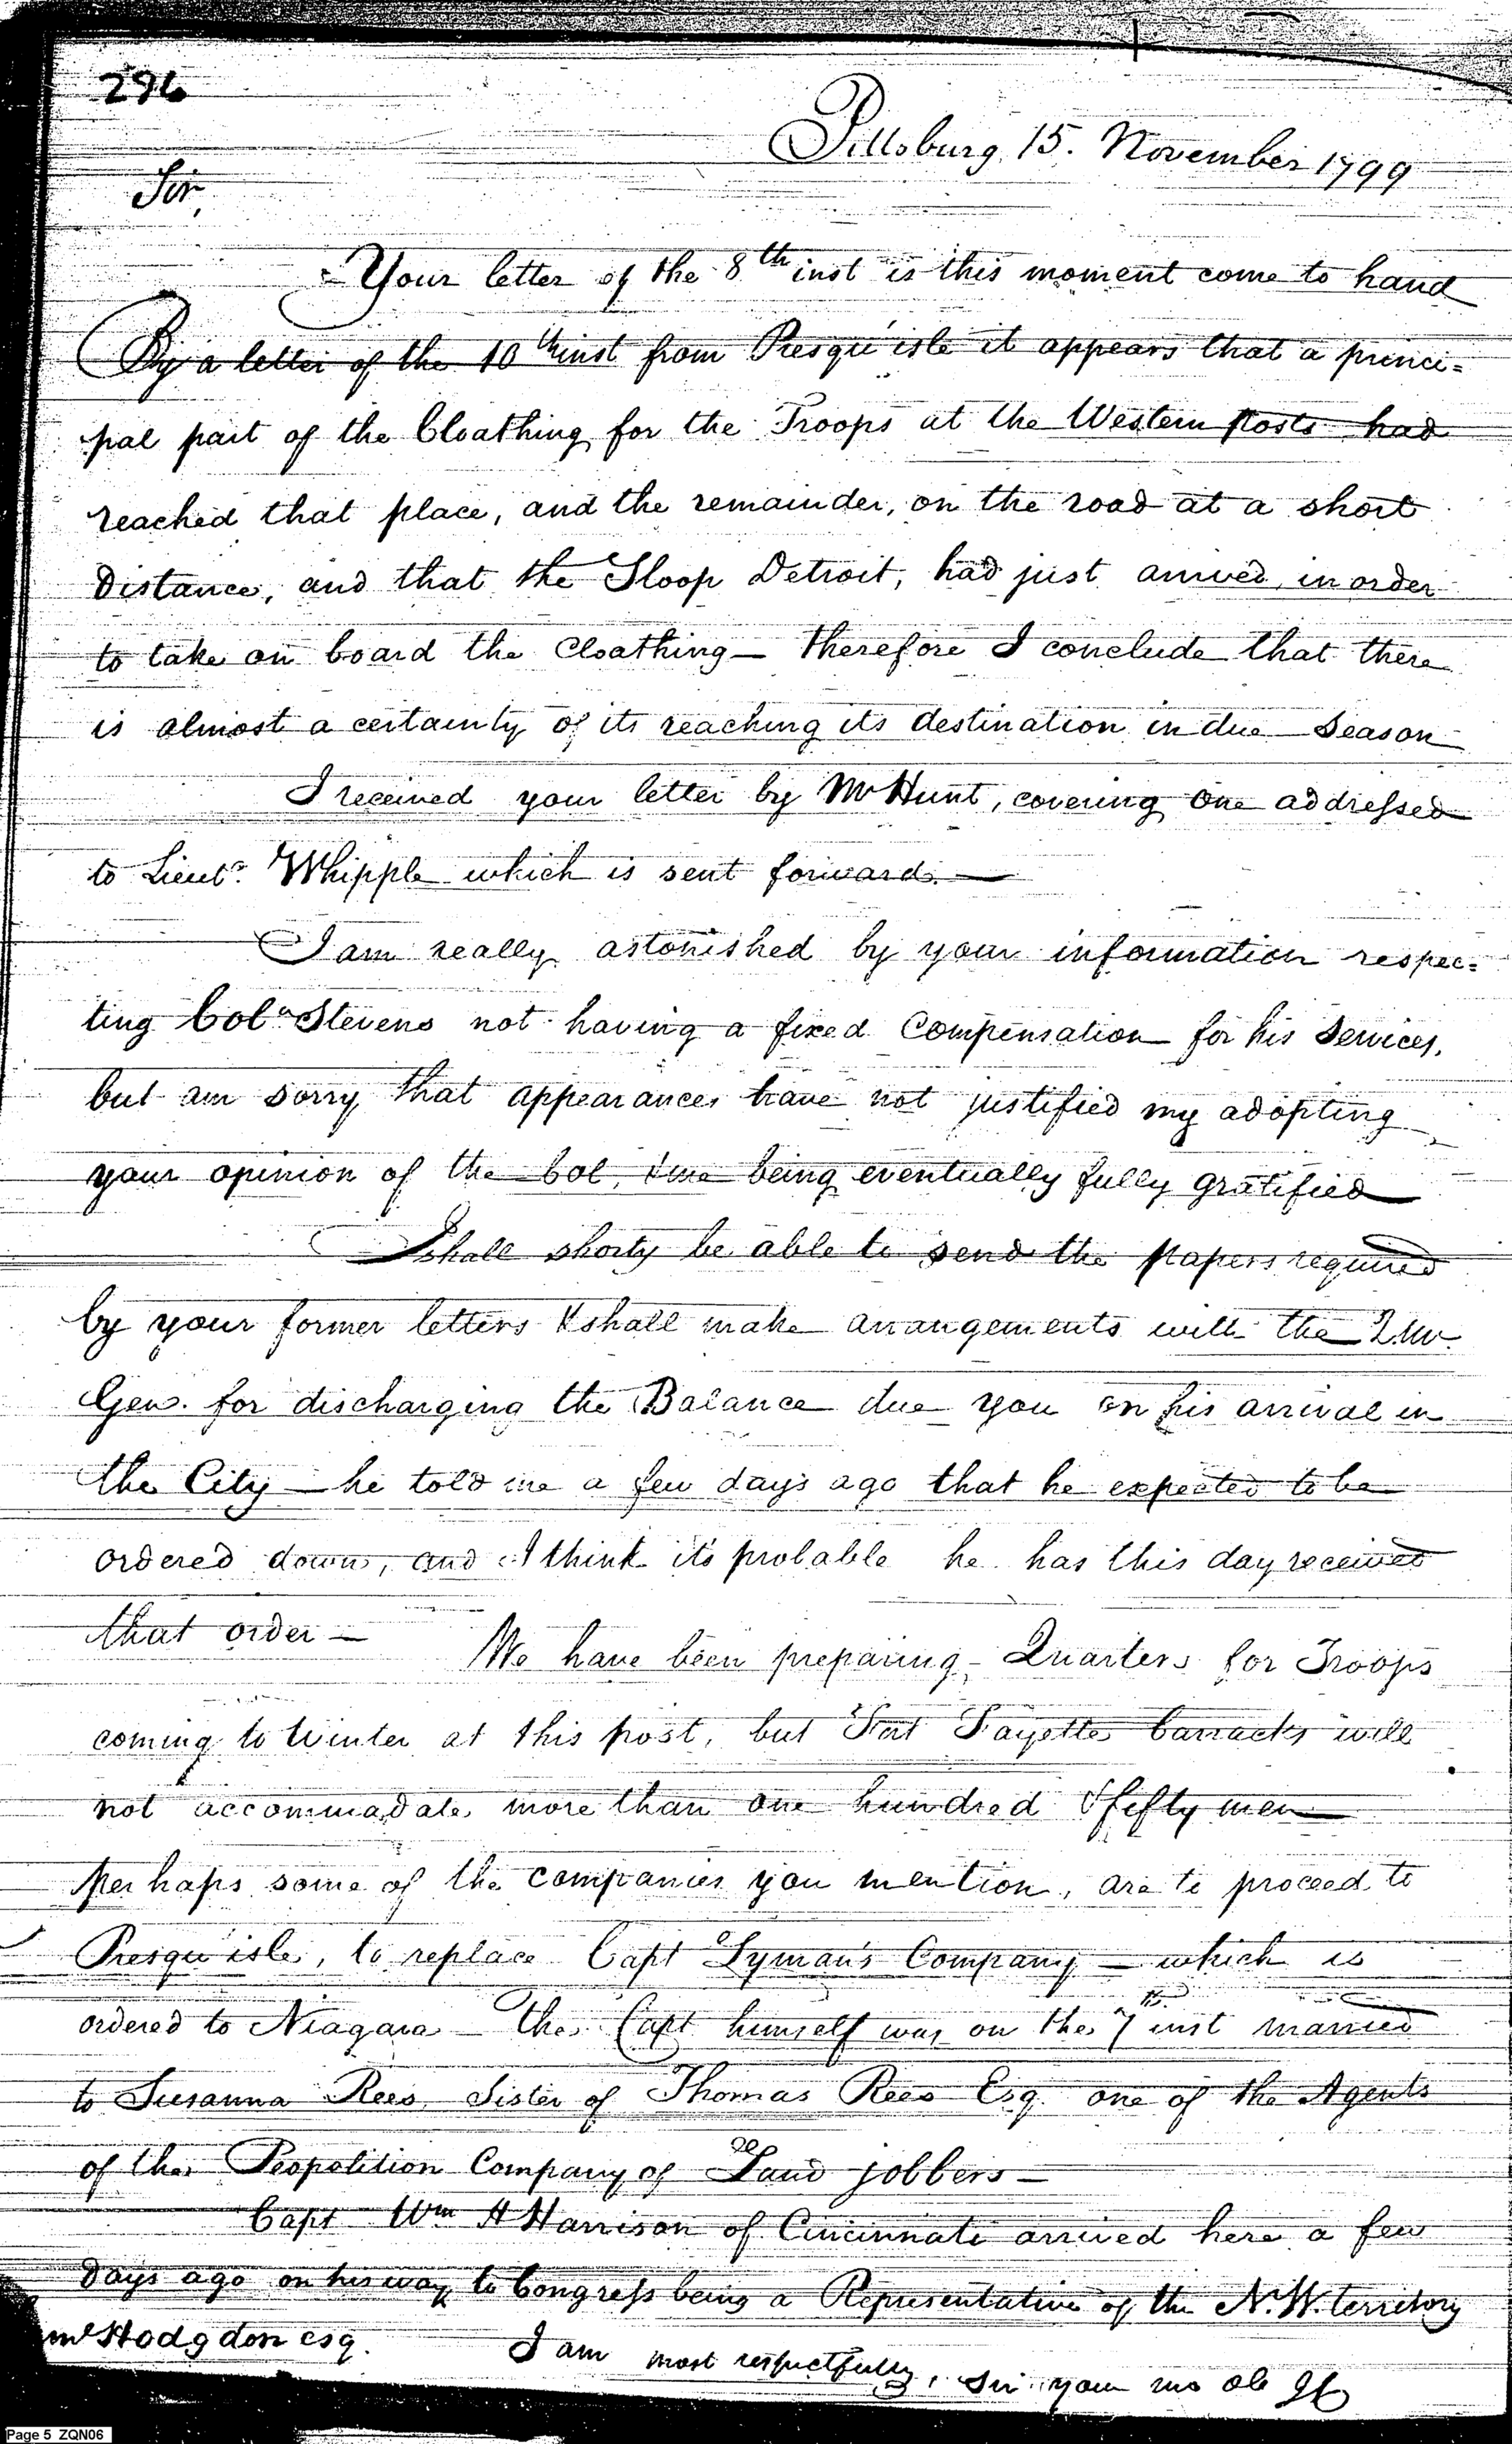 296
Pittsburg, 15. November 1799
Sir,
Your letter of the 8th inst is this moment come to hand
By a letter of the 10th inst from Presqu'isle it appears that a princi=
pal part of the Cloathing for the Troops at the Western Posts had
reached that place, and the remainder, on the road at a short
Distance, and that the Sloop Detroit, had just arrived, in order
to take on board the Cloathing — therefore I conclude that there
is almost a certainty of its reaching its destination in due Season
I received your letter by Mr Hunt, covering one addressed
to Lieut. Whipple which is sent forward. —
I am really astonished by your information respec=
ting Coln Stevens not having a fixed Compensation for his Services,
but am sorry that appearances have not justified my adopting
your opinion of the Col. being eventually fully gratified
I shall shorty be able to send the papers required
by your former letters & shall make arrangements with the Q Mr.
Gen. for discharging the Balance due you on his arrival in
the City — he told me a few days ago that he expected to be
ordered down, and I think its probable he has this day received
that order —
We have been preparing Quarters for Troops
coming to Winter at this post, but Fort Fayette barracks will
not accommadate more than one hundred & fifty men
perhaps some of the companies you mention, are to proceed to
Presqu'isle, to replace Capt Lyman's Company — which is
ordered to Niagara — the Capt himself was on the 7th inst married
to Susanna Rees Sister of Thomas Rees Esq. one of the Agents
of the Peopolition Company of Land jobbers —
Capt Wm H Harrison of Cincinnati arrived here a few
Days ago on his way to Congress being a Representative of the N.W. territory
Hodgdon esq.
I am most respectfully, Sir your mo ob
Page 5 ZQN06